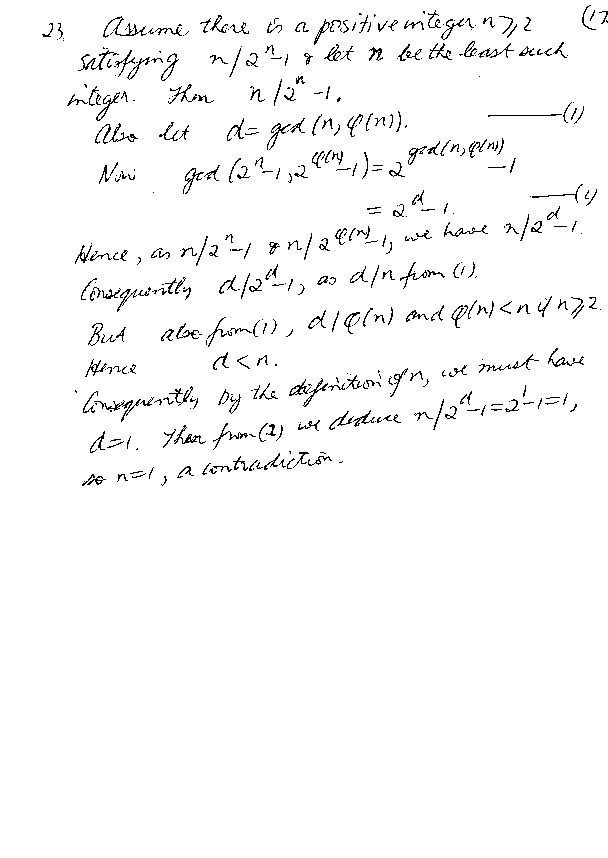 23. Assume there is a positive integer n ≥ 2 (17
satisfying n/2^n-1 & let n be the least such
integer. Then n/2^n-1.
Also let d = gcd(n, φ(n)). ———(1)
Now gcd(2^n-1, 2^φ(n)-1) = 2^gcd(n,φ(n)) -1
= 2^d-1. ———(2)
Hence, as n/2^n-1 & n/2^φ(n)-1, we have n/2^d-1.
Consequently d/2^d-1, as d/n from (1).
But also from (1), d/φ(n) and φ(n)<n if n≥2.
Hence d<n.
Consequently by the definition of n, we must have
d=1. Then from (2) we deduce n/2^d-1=2^1-1=1,
so n=1, a contradiction.